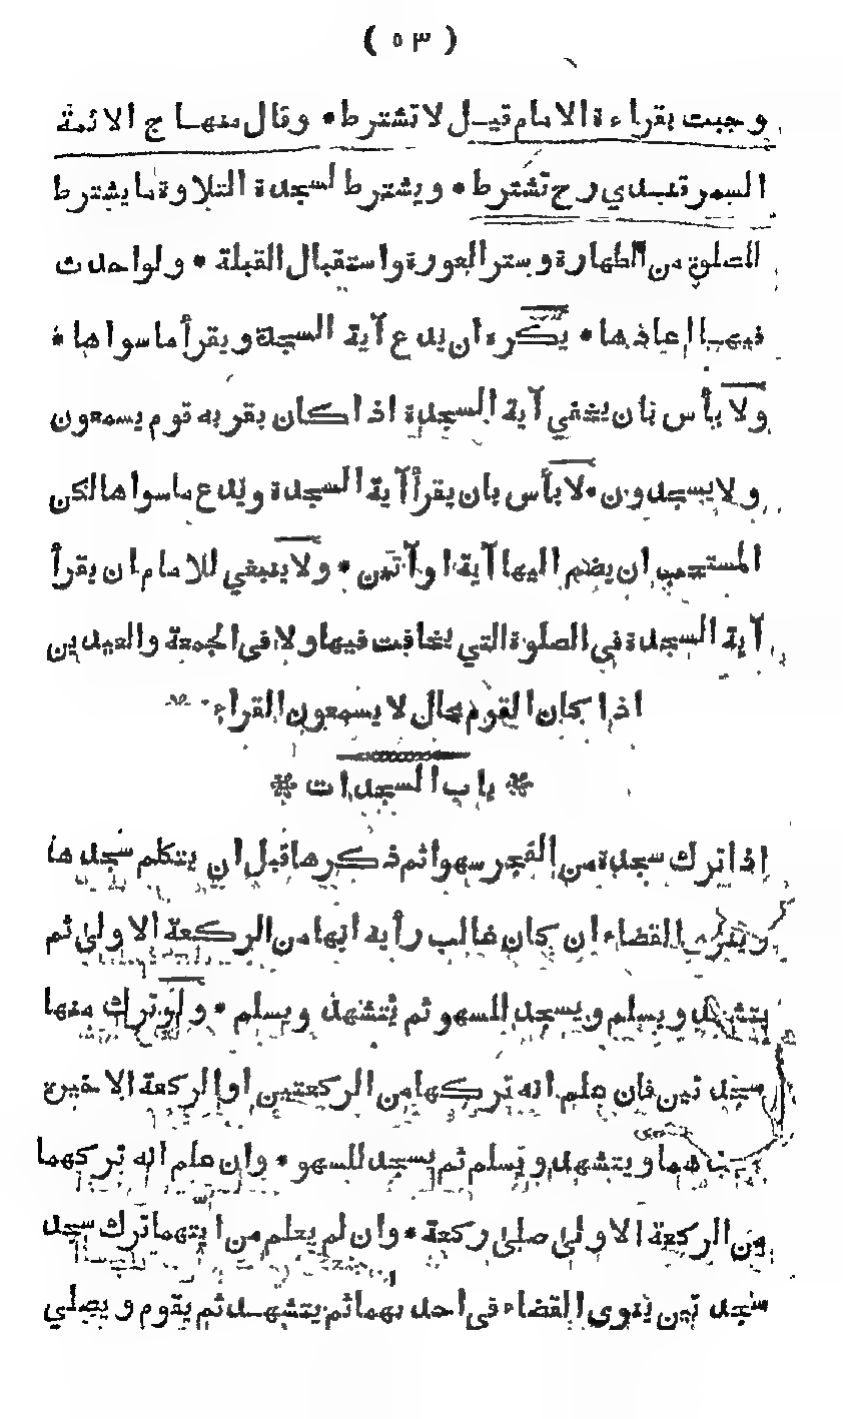 ( ٥٣ )
وجبت بقراءة الامام قيل لا تشترط * وقال منهاج الائمة
السمرقندي رح تشترط * ويشترط لسجدة التلاوة ما يشترط
للصلوة من الطهارة وستر العورة واستقبال القبلة * ولو احدث
فيها اعادها * يكره ان يدع آية السجدة ويقرأ ما سواها *
ولا بأس بان يخفي آية السجدة اذا كان بقربه قوم يسمعون
ولا يسجدون * لا بأس بان يقرأ آية السجدة ويدع ما سواها لكن
المستحب ان يضم اليها آية او آتين * ولا ينبغي للامام ان يقرأ
آية السجدة في الصلوة التي يخافت فيها ولا في الجمعة والعيدين
اذا كان القوم بحال لا يسمعون القراء
* باب السجدات *
اذا ترك سجدة من الفجر سهوا ثم ذكرها قبل ان يتكلم سجدها
وينوي القضاء ان كان غالب رأيه انها من الركعة الاولى ثم
يتشهد ويسلم ويسجد للسهو ثم يتشهد ويسلم * ولو ترك منها
سجدتين فان علم انه تركها من الركعتين او الركعة الاخيرة
هما ويتشهد ويسلم ثم يسجد للسهو * وان علم انه تركهما
من الركعة الاولى صلى ركعة * وان لم يعلم من ايتهما ترك سجد
سجدتين ينوي القضاء في احدبهما ثم يتشهد ثم يقوم ويصلي